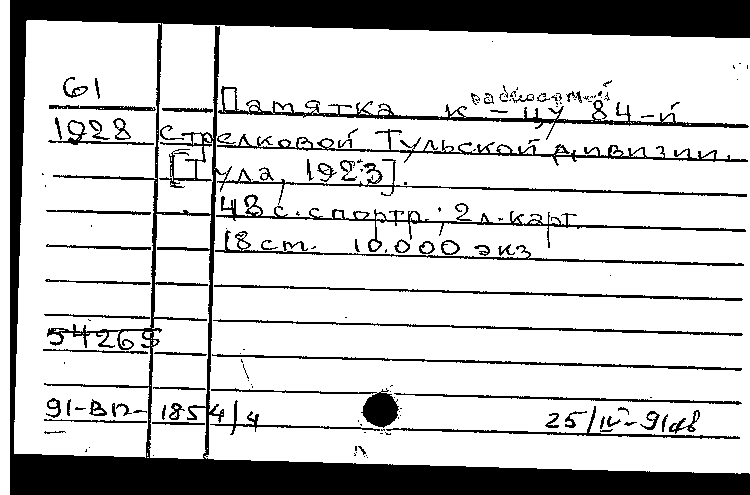 61
Памятка к-цу 84-й
1928 стрелковой Тульской дивизии.
[Тула, 1923].
48 с. с портр.; 2 л. карт.
18 см. 10.000 экз
54269
91-ВП-1854/4 25/IV-91